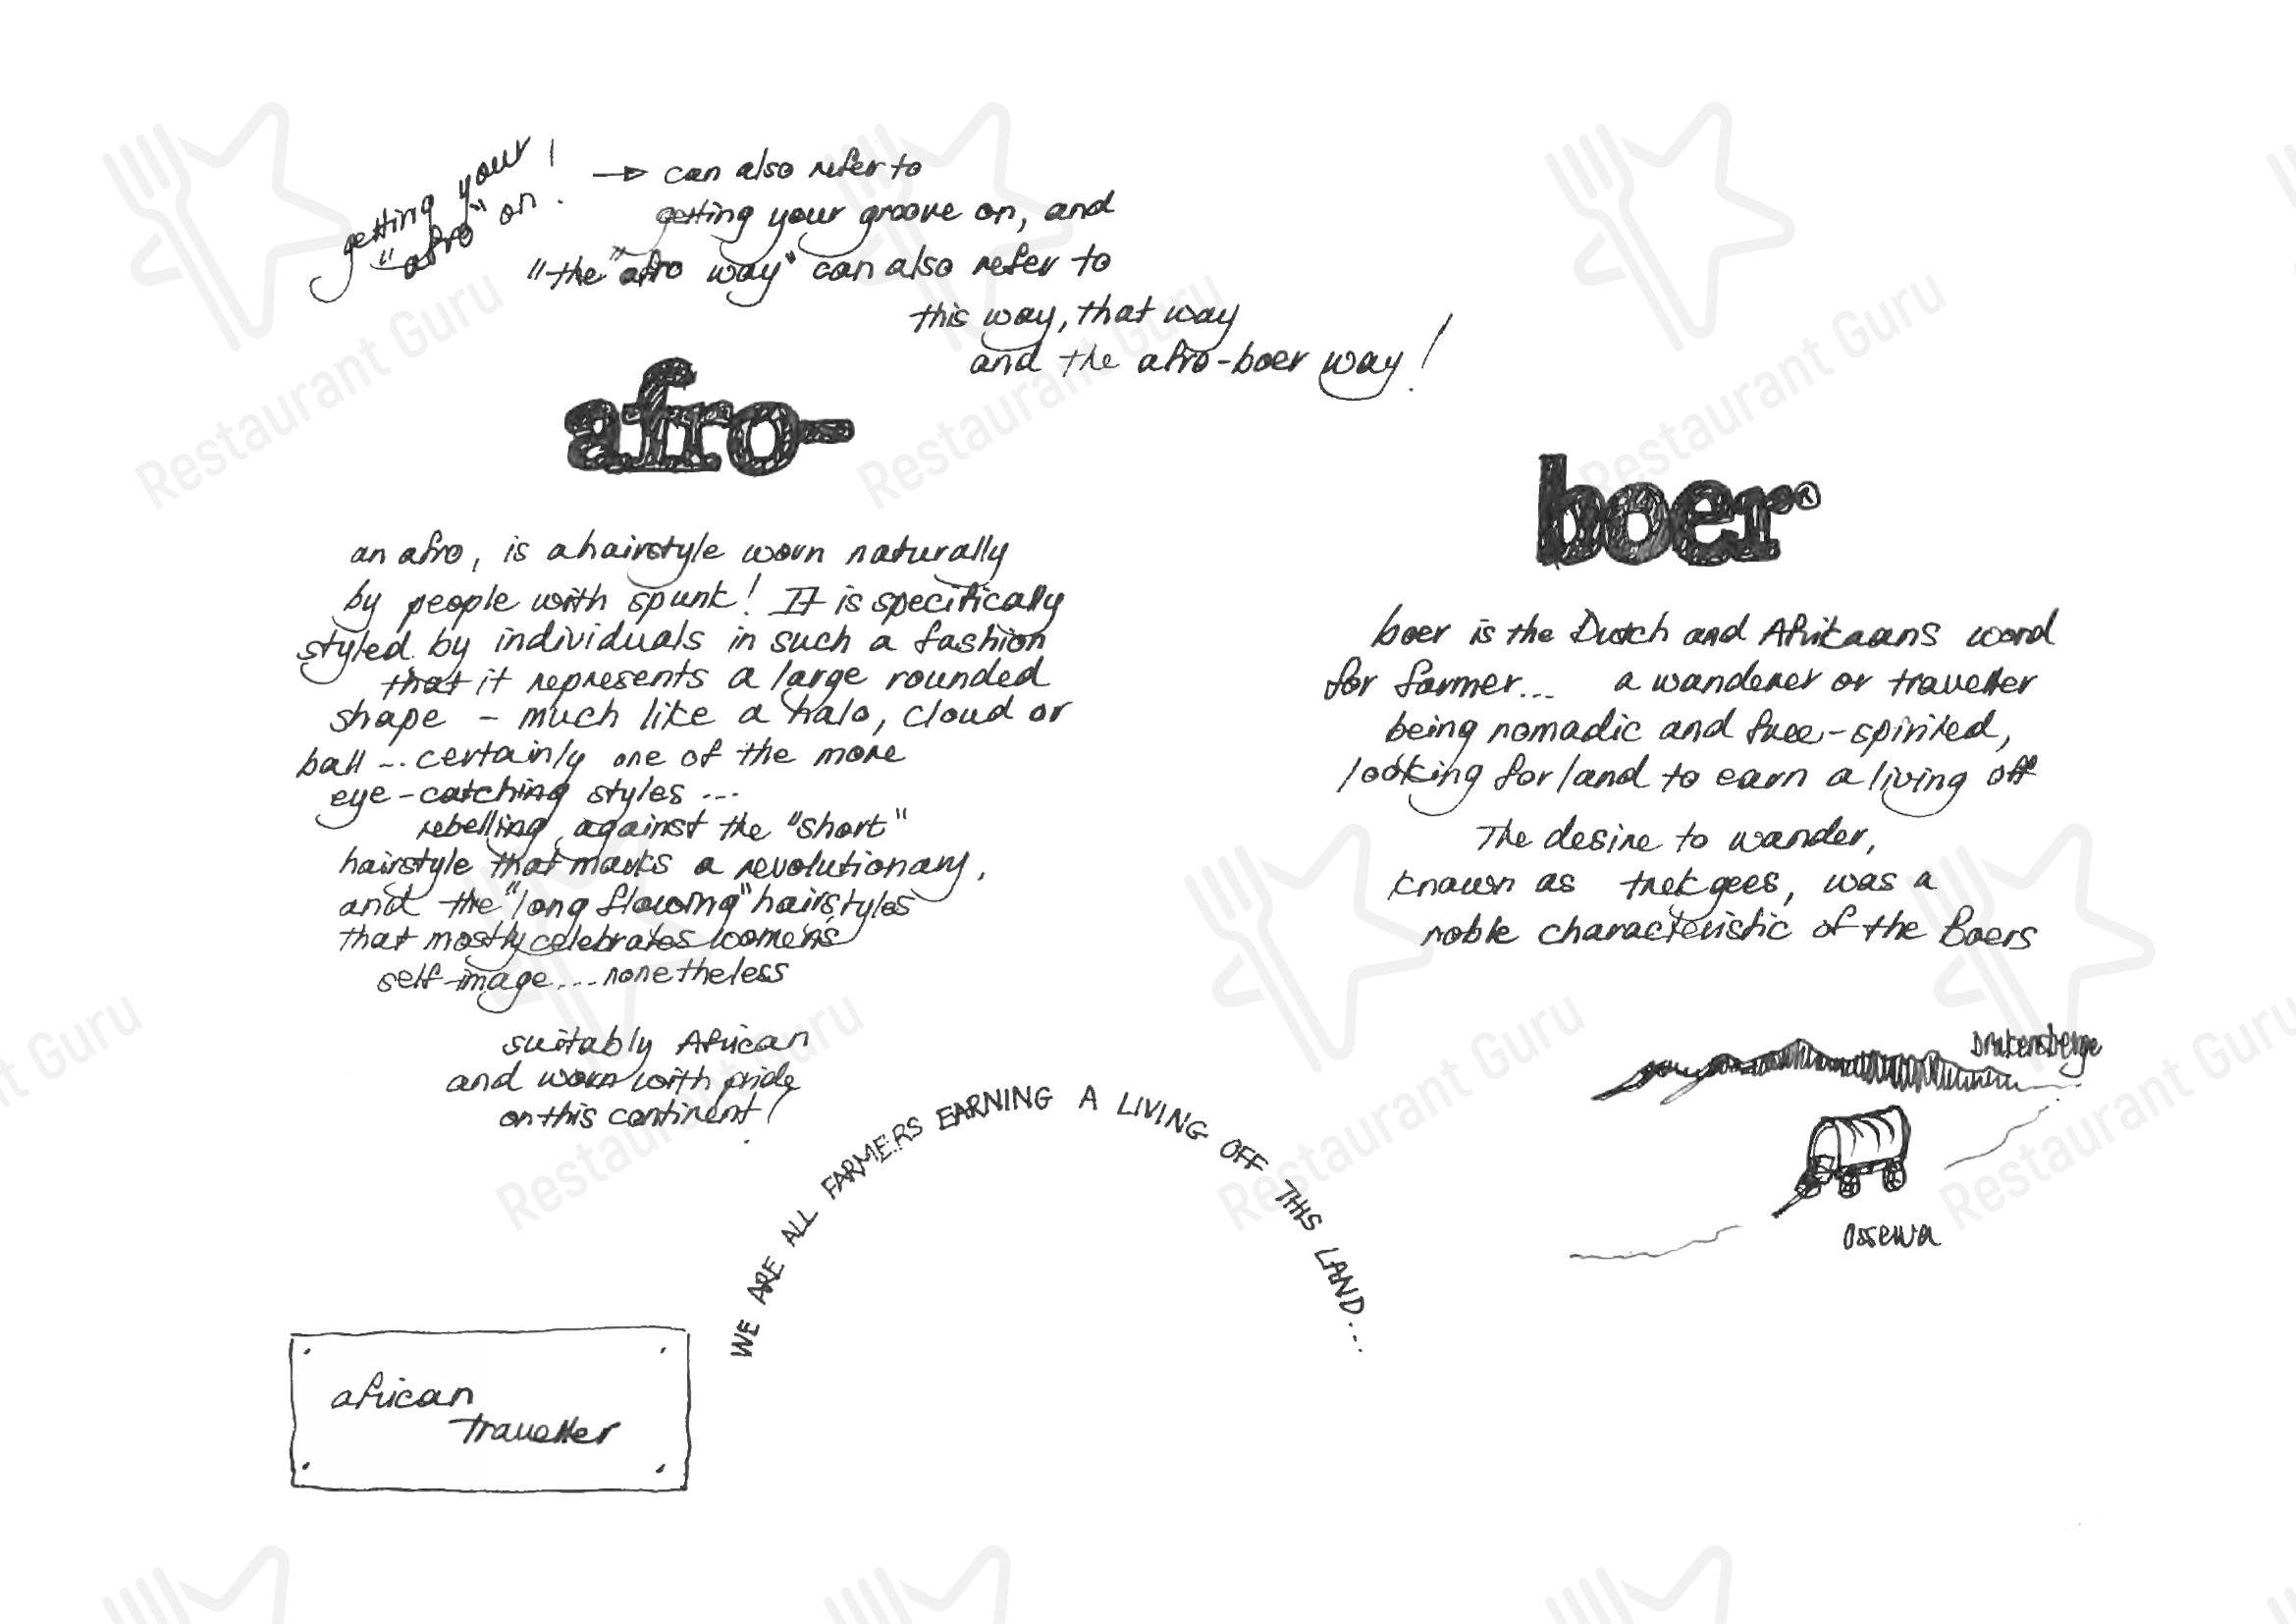 getting your!
"afro" on.
can also refer to
getting your groove on, and
"the "afro way" can also refer to
this way, that way
and the afro-boer way!
afro-
an afro, is a hairstyle worn naturally
by people with spunk! It is specifically
styled by individuals in such a fashion
that it represents a large rounded
shape - much like a halo, cloud or
ball ... certainly one of the more
eye-catching styles ...
rebelling against the "short"
hairstyle that marks a revolutionary,
and the "long flowing" hairstyles
that mostly celebrates women's
self-image....nonetheless
suitably African
and worn with pride
on this continent!
boer®
boer is the Dutch and Afrikaans word
for farmer... a wanderer or traveller
being nomadic and free-spirited,
looking for land to earn a living off
The desire to wander,
known as trekgees, was a
noble characteristic of the Boers
Drakensberge
ossewa
WE ARE ALL FARMERS EARNING A LIVING OFF THIS LAND...
african
traveller
Restaurant Guru
Restaurant Guru
Restaurant Guru
nt Guru
Restaurant Guru
Restaurant Guru
Restaurant Guru